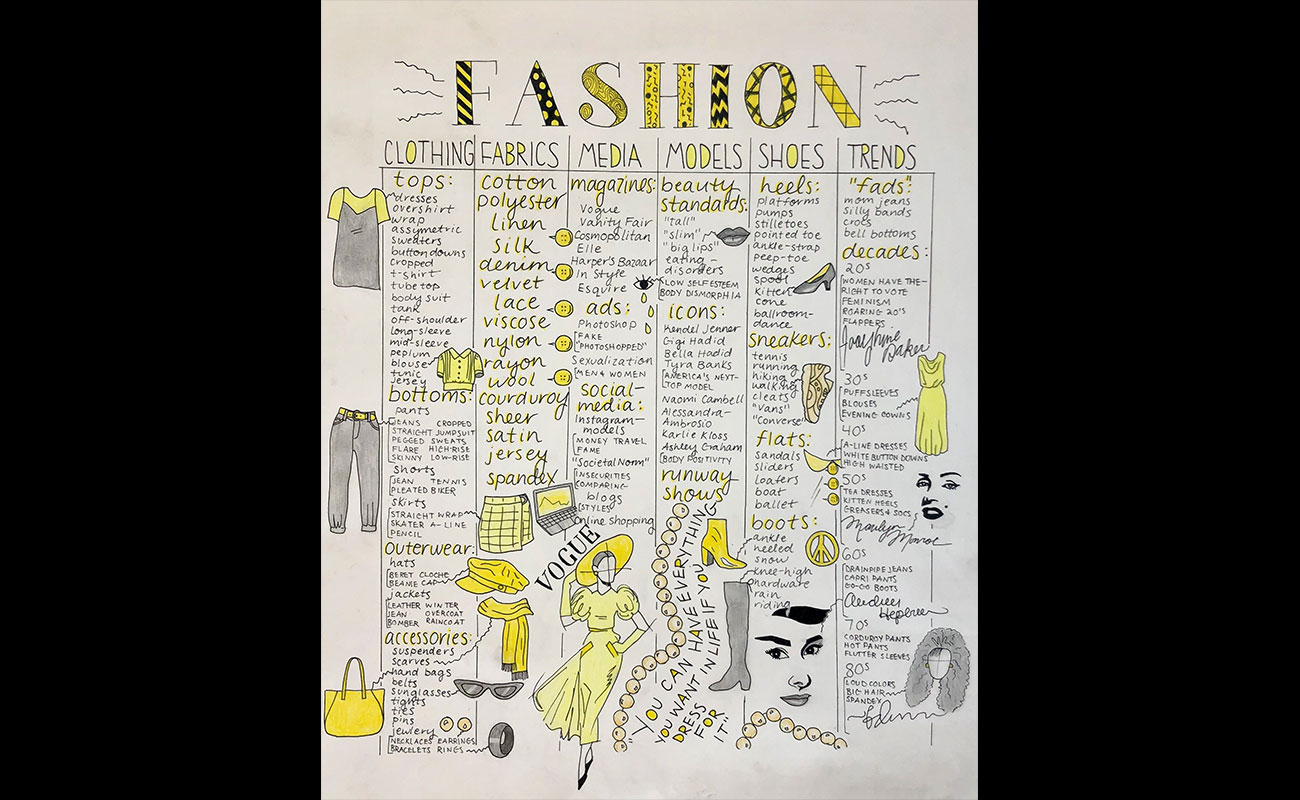 FASHION
CLOTHING
tops:
dresses
overshirt
wrap
assymetric
sweaters
button downs
cropped
t-shirt
tube top
body suit
tank
off-shoulder
long-sleeve
mid-sleeve
peplum
blouse
tunic
jersey
bottoms:
pants
JEANS CROPPED
STRAIGHT JUMPSUIT
PEGGED SWEATS
FLARE HIGH-RISE
SKINNY LOW-RISE
shorts
JEAN TENNIS
PLEATED BIKER
skirts
STRAIGHT WRAP
SKATER A-LINE
PENCIL
outerwear:
hats
BERET CLOCHE
BEANIE CAP
jackets
LEATHER WINTER
JEAN OVERCOAT
BOMBER RAINCOAT
accessories:
suspenders
scarves
hand bags
belts
sunglasses
tights
ties
pins
jewlery
NECKLACES EARRINGS
BRACELETS RINGS
FABRICS
cotton
polyester
linen
silk
denim
velvet
lace
viscose
nylon
rayon
wool
courduroy
sheer
satin
jersey
spandex
MEDIA
magazines:
Vogue
Vanity Fair
Cosmopolitan
Elle
Harper's Bazaar
In Style
Esquire
ads:
Photoshop
FAKE
"PHOTOSHOPPED"
Sexualization
MEN & WOMEN
social-
media:
Instagram-
models
MONEY TRAVEL
FAME
"Societal Norm"
INSECURITIES
COMPARING
blogs
STYLES
Online shopping
VOGUE
MODELS
beauty
standards:
"tall"
"slim"
"big lips"
eating-
disorders
LOW SELF ESTEEM
BODY DISMORPHIA
icons:
Kendel Jenner
Gigi Hadid
Bella Hadid
Tyra Banks
AMERICA'S NEXT-
TOP MODEL
Naomi Cambell
Alessandra-
Ambrosio
Karlie Kloss
Ashley Graham
BODY POSITIVITY
runway
shows
"YOU CAN HAVE EVERYTHING
YOU WANT IN LIFE IF YOU
DRESS
FOR
IT"
SHOES
heels:
platforms
pumps
stilletoes
pointed toe
ankle-strap
peep-toe
wedges
spool
kitten
cone
ballroom-
dance
sneakers:
tennis
running
hiking
walking
cleats
"Vans"
"Converse"
flats:
sandals
sliders
loafers
boat
ballet
boots:
ankle
heeled
snow
knee-high
hardware
rain
riding
TRENDS
"fads":
mom jeans
silly bands
crocs
bell bottoms
decades:
20s
WOMEN HAVE THE-
RIGHT TO VOTE
FEMINISM
ROARING 20'S
FLAPPERS
Josephine
Baker
30s
PUFF SLEEVES
BLOUSES
EVENING GOWNS
40s
A-LINE DRESSES
WHITE BUTTON DOWNS
HIGH WAISTED
50s
TEA DRESSES
KITTEN HEELS
GREASERS & SOCS
Marilyn
Monroe
60s
DRAINPIPE JEANS
CAPRI PANTS
GO-GO BOOTS
Audrey
Hepburn
70s
CORDUROY PANTS
HOT PANTS
FLUTTER SLEEVES
80s
LOUD COLORS
BIG HAIR
SPANDEX